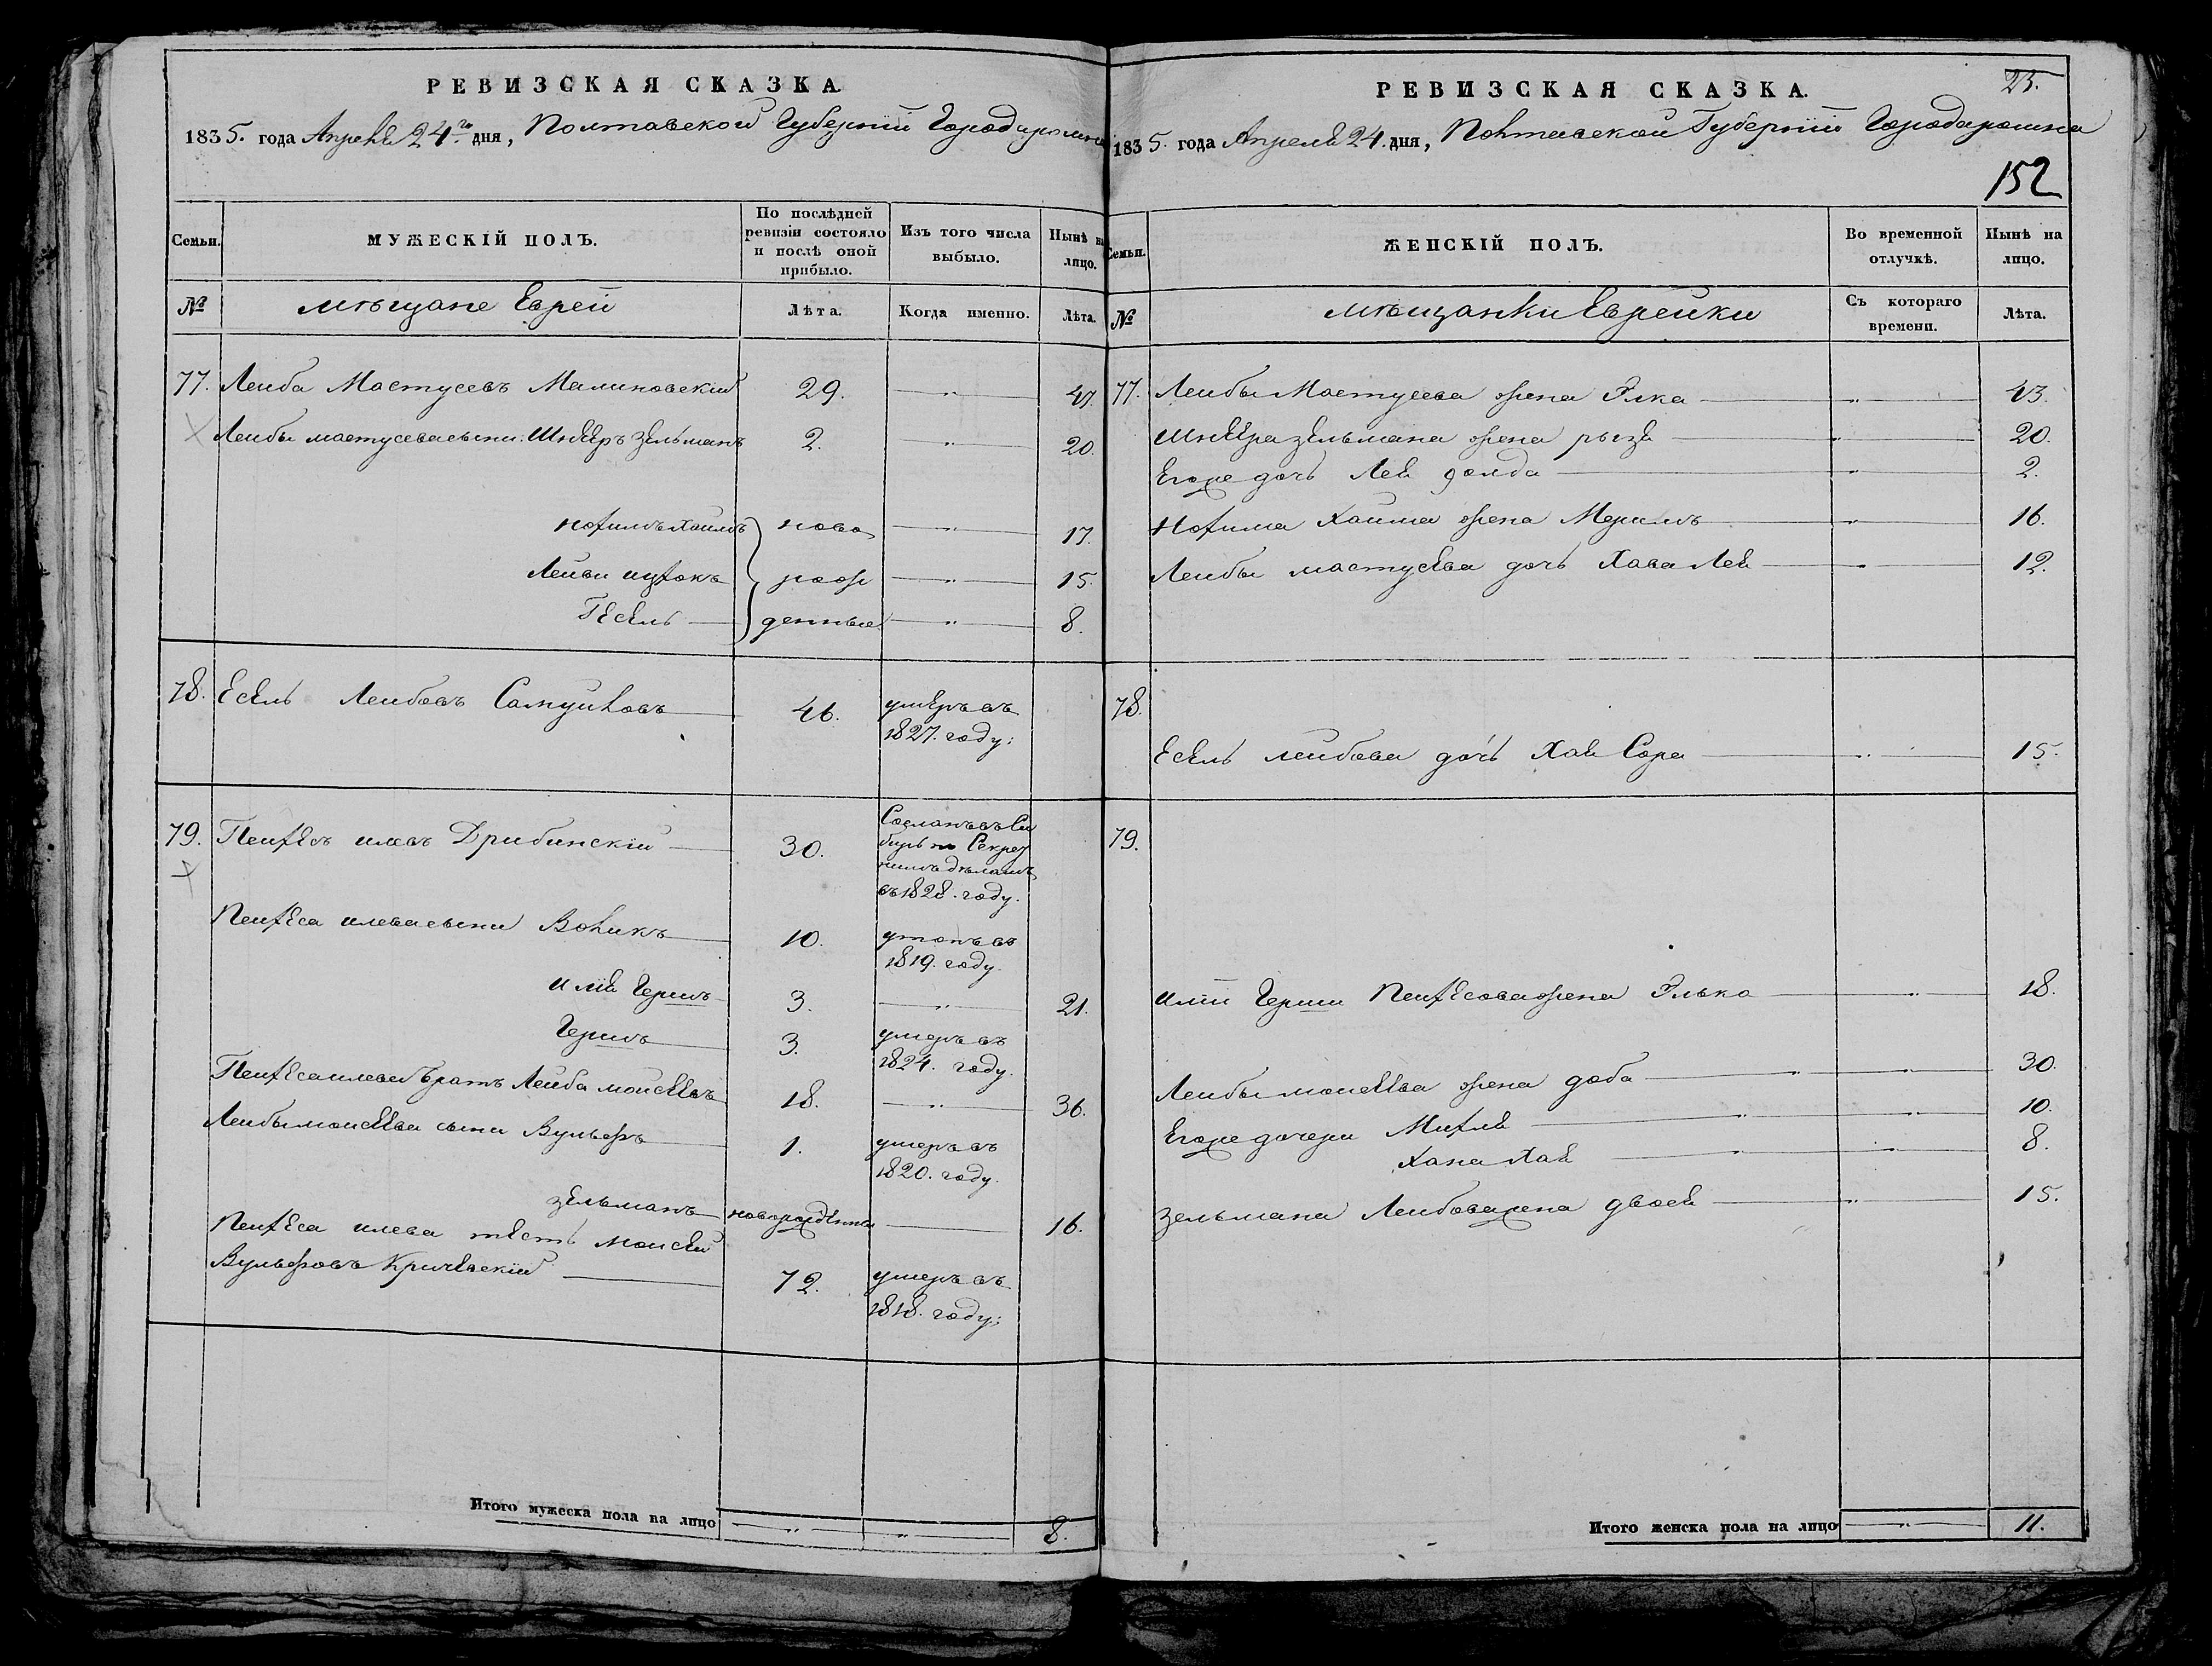 РЕВИЗСКАЯ СКАЗКА.
1835. года Апреля 24го дня, Полтавской Губернiи Города ромна
Семьи. МУЖЕСКIЙ ПОЛЪ. По послѣдней ревизiи состояло и послѣ оной прибыло. Изъ того числа выбыло. Нынѣ на лицо.
№ мѣщане Еврей Лѣта. Когда именно. Лѣта.
77. Леиба Мастусевъ Малиновскiй 29. — „ — 47.
Леибы мастусева сыни: Шнееръ Зельманъ 2. — „ — 20.
Нохимъ Хаимъ ново — „ — 17.
Лейви ицхокъ рож — „ — 15.
Гесель денные — „ — 8.
78. Есель Леибовъ Самуйловъ 46. умеръ въ
1827. году;
79. Пенхесъ илевъ Дрибинскiй 30. Сосланъ въ Си
биръ по Секрет
нимъ дѣламъ
въ 1828. году.
Пенхеса илева сыни Воликъ 10. утопъ въ
1819. году.
илiя Гершъ 3. — „ — 21.
Гершъ 3. умеръ въ
1824. году.
Пенхеса илева братъ Леиба моисеевъ 18. — „ — 36.
Леибы моисеева сыни Вульфъ 1. умеръ въ
1820. году.
Зельманъ новорожденны — 16.
Пенхеса илева тесть моисей
Вульфовъ Кричевскiй 72. умеръ въ
1818. году;
Итого мужеска пола на лицо — „ — „ — 8.
РЕВИЗСКАЯ СКАЗКА. 25.
1835. года Апреля 24. дня, Полтавской Губернiи Города ромна
152
Семьи. ЖЕНСКIЙ ПОЛЪ. Во временной отлучкѣ. Нынѣ на лицо.
№ мѣщанки Еврейки Съ котораго времени. Лѣта.
77. Леибы Мастусева жена Элка — „ — 43.
Шнеера зельмана жена рыза — „ — 20.
Егоже дочъ Лея — „ — 2.
Нохима Хаима жена Мериамъ — „ — 16.
Леибы мастусева дочъ Хава Лея — „ — 12.
78.
Есель леибова дочъ Хая Сора — „ — 15.
79.
илiи Герши Пенхесова жена Элька — „ — 18.
Леибы моисеева жена доба — „ — 30.
Егоже дочери Михля — „ — 10.
Хана Хая — „ — 8.
Зельмана Леибова жена двося — „ — 15.
Итого женска пола на лицо — „ — 11.